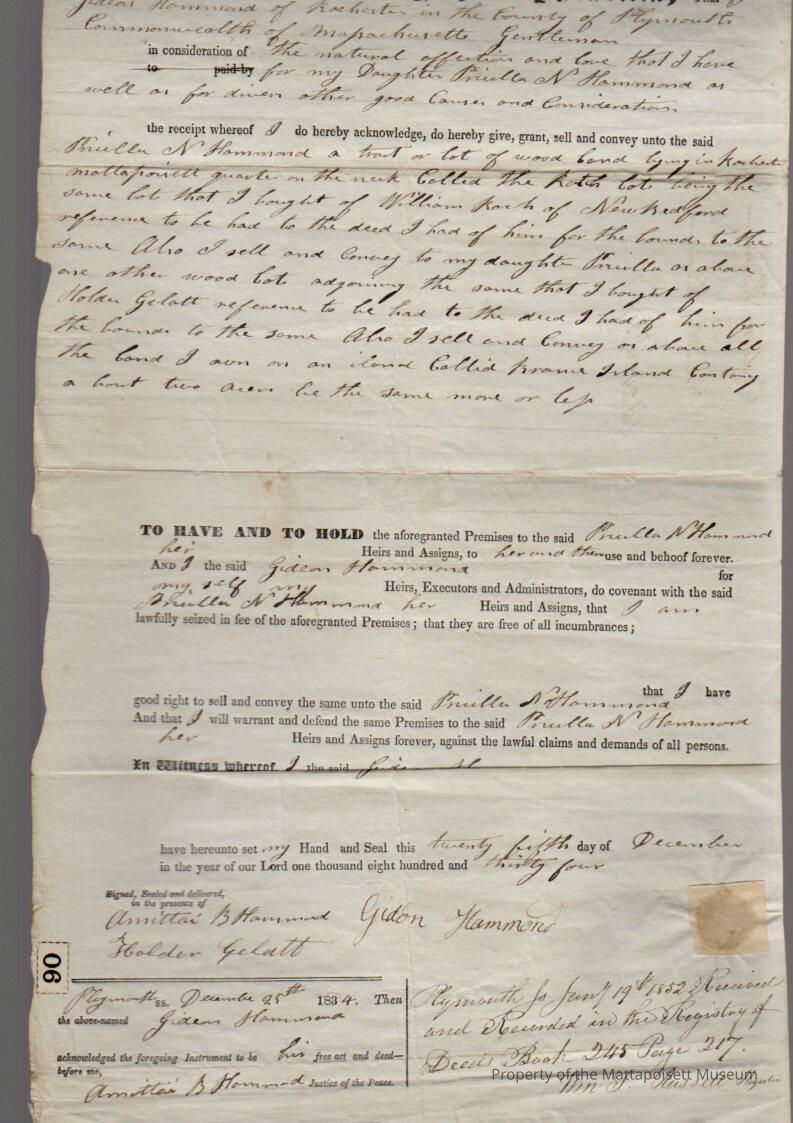 Gideon Hammond of Rochester in the County of Plymouth
Commonwealth of Massachusetts Gentleman
in consideration of the natural affection and love that I have
to paid by for my Daughter Priscilla N Hammond as
well as for divers other good Causes and Consideration
the receipt whereof I do hereby acknowledge, do hereby give, grant, sell and convey unto the said
Priscilla N Hammond a tract or lot of wood land lying in Rochester
mattapoisett quarter on the neck Called the lots being the
same lot that I bought of William of New Bedford
reference to be had to the deed I had of him for the bounds to the
same Also I sell and Convey to my daughter Priscilla as above
one other wood lot adjoining the same that I bought of
Holder Gelatt reference to be had to the deed I had of him for
the bounds to the same Also I sell and Convey as above all
the land I own on an iland Callid Island
a bout two acers be the same more or less
TO HAVE AND TO HOLD the aforegranted Premises to the said Priscilla N Hammond
her Heirs and Assigns, to her and their use and behoof forever.
AND I the said Gideon Hammond for
my self my Heirs, Executors and Administrators, do covenant with the said
Priscilla N Hammond her Heirs and Assigns, that I am
lawfully seized in fee of the aforegranted Premises; that they are free of all incumbrances;
that I have
good right to sell and convey the same unto the said Priscilla N Hammond
And that I will warrant and defend the same Premises to the said Priscilla N Hammond
her Heirs and Assigns forever, against the lawful claims and demands of all persons.
In Witness whereof, I the said
have hereunto set my Hand and Seal this twenty fifth day of December
in the year of our Lord one thousand eight hundred and thirty four
Signed, Sealed and delivered,
in the presence of
Amittai B Hammond Gideon Hammond
Holder Gelatt
90
Plymouth ss. December 25th 1834. Then
the above-named Gideon Hammond
acknowledged the foregoing Instrument to be his free act and deed—
before me,
Amittai B Hammond Justice of the Peace.
Plymouth ss Jany 19th 1852 Received
and Recorded in the Registry of
Deeds Book 245 Page 217.
Wm S. Russell Register
Property of the Mattapoisett Museum